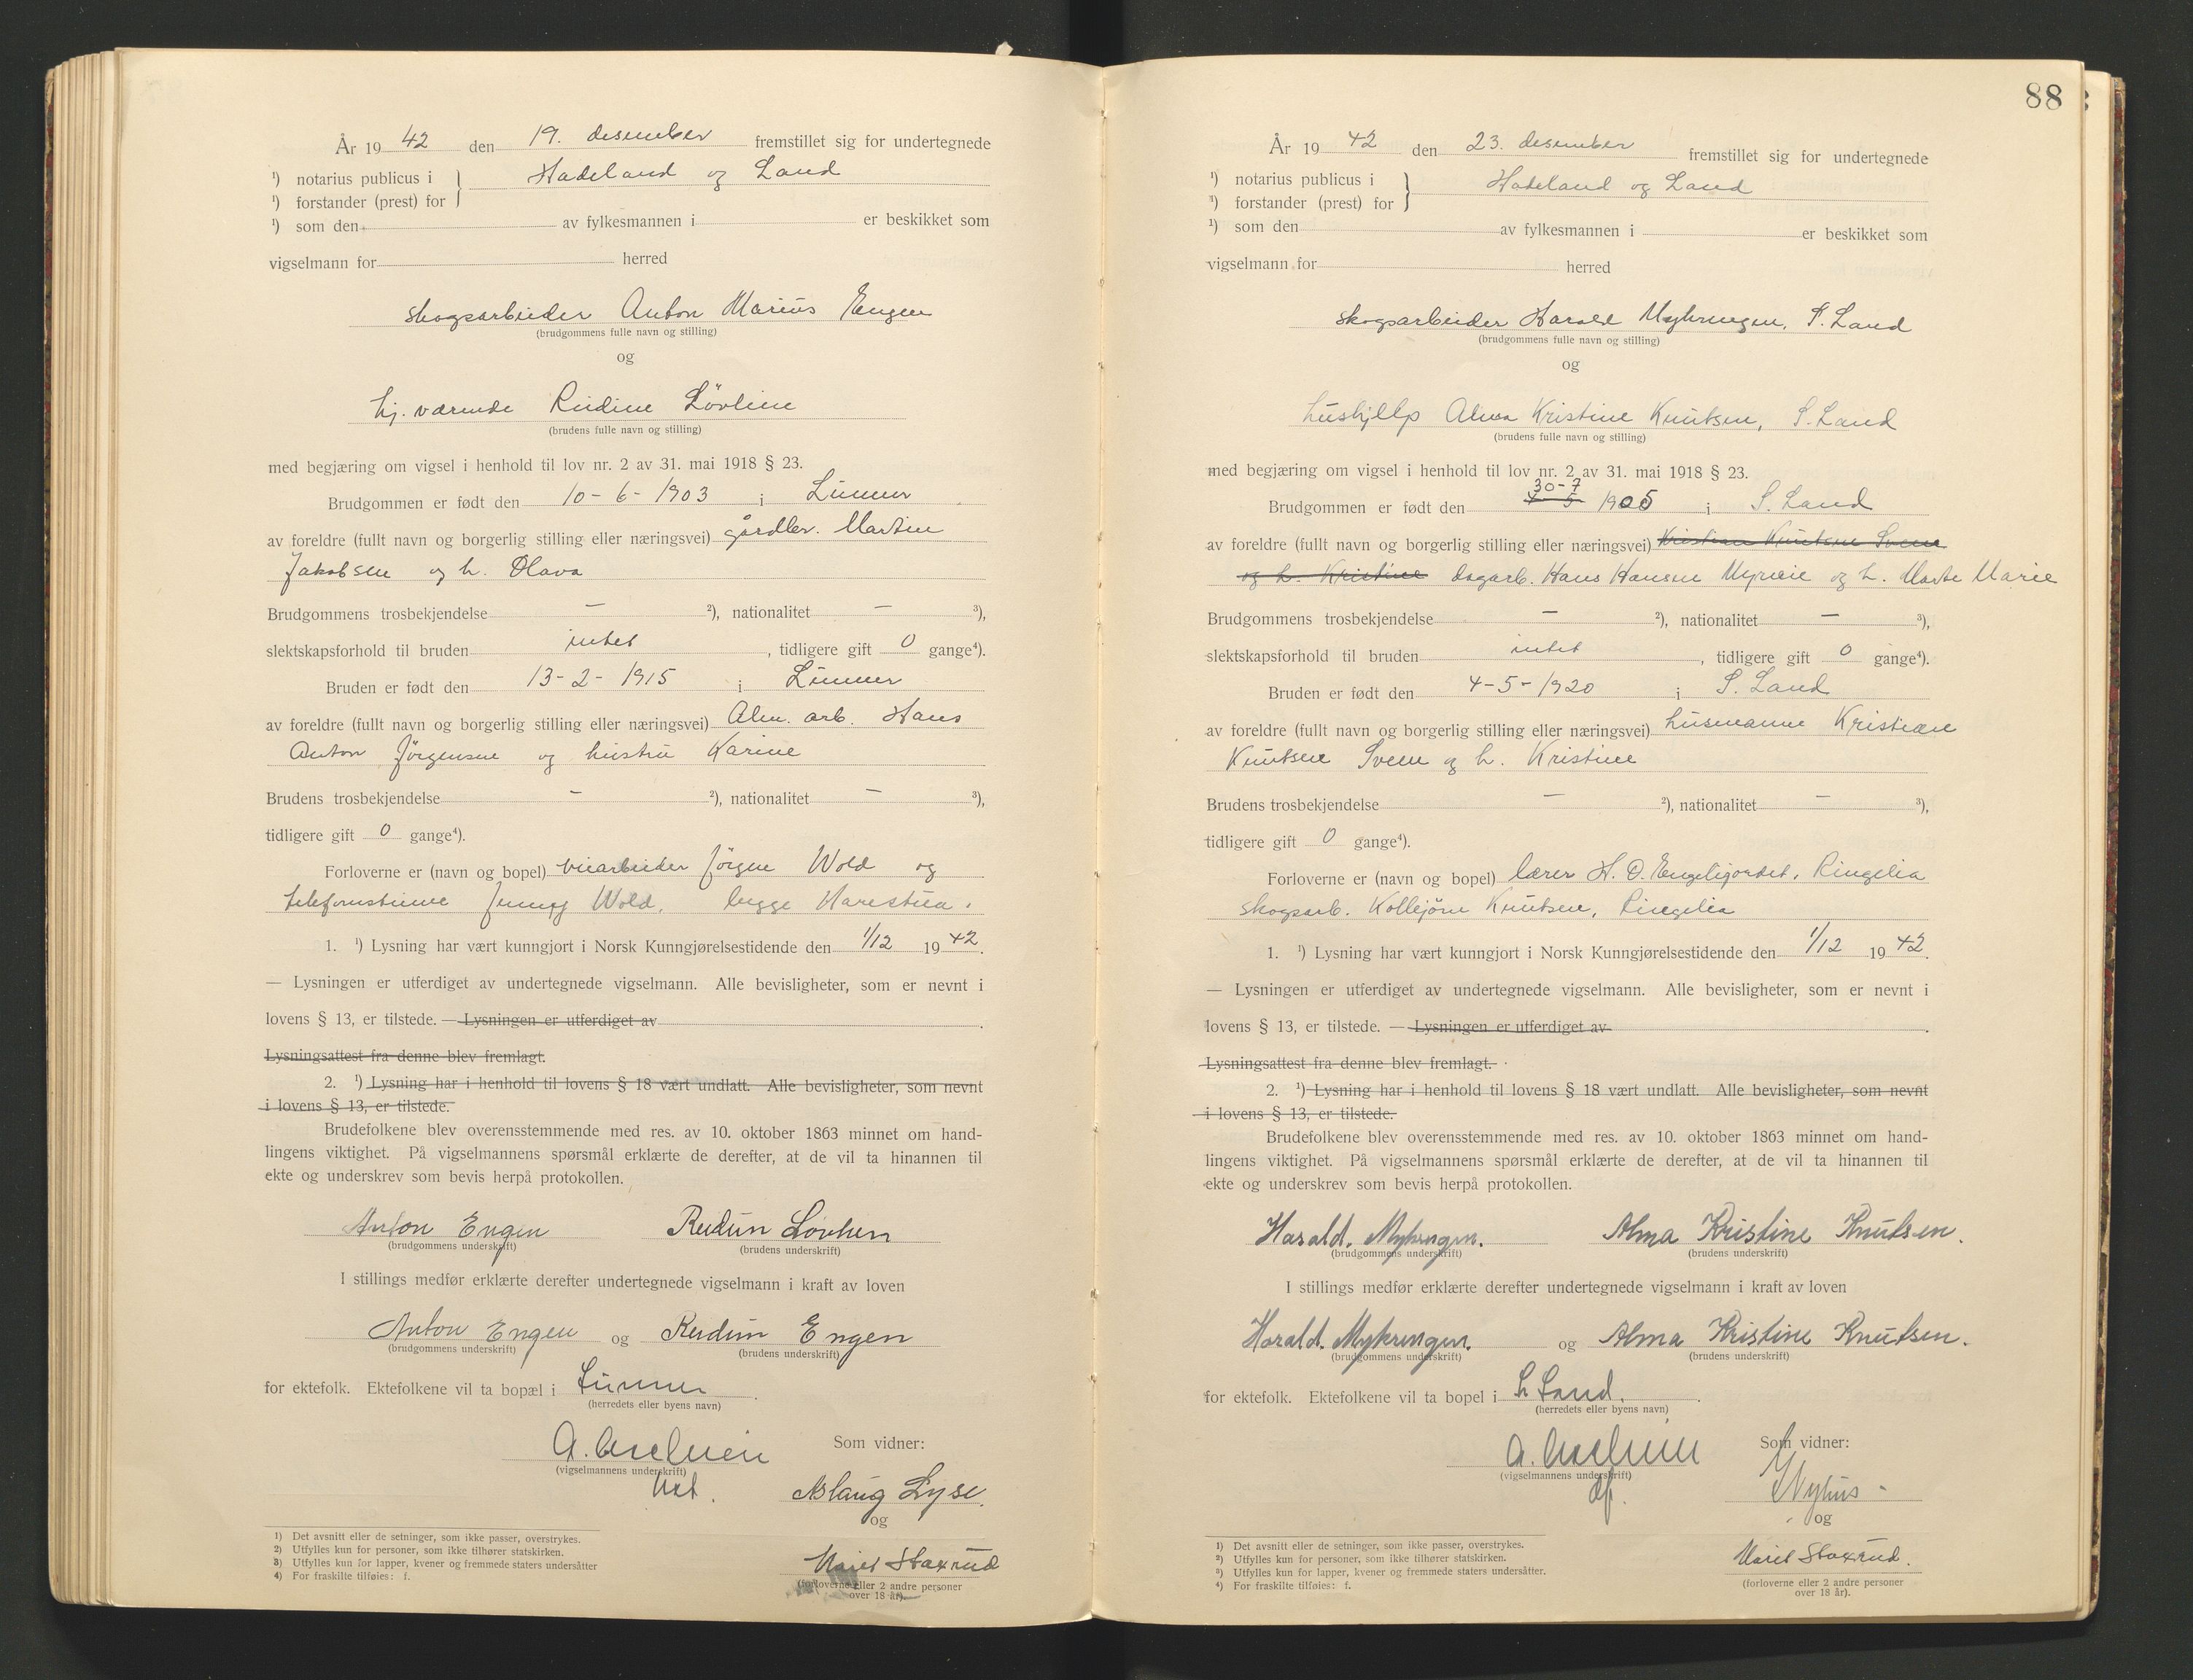 År 19 42 den 19. desember fremstillet sig for undertegnede
¹) notarius publicus i } Hadeland og Land
¹) forstander (prest) for
¹) som den av fylkesmannen i er beskikket som
vigselmann for herred
skogsarbeider Anton Marius Engen
(brudgommens fulle navn og stilling)
og
hj. værende Reidun Lövlien
(brudens fulle navn og stilling)
med begjæring om vigsel i henhold til lov nr. 2 av 31. mai 1918 § 23.
Brudgommen er født den 10-6-1903 i Lunner
av foreldre (fullt navn og borgerlig stilling eller næringsvei) gårdbr. Martin
Jakobsen og h. Olava
Brudgommens trosbekjendelse — ²), nationalitet — ³),
slektskapsforhold til bruden intet, tidligere gift 0 gange⁴).
Bruden er født den 13-2-1915 i Lunner
av foreldre (fullt navn og borgerlig stilling eller næringsvei) Alm. arb. Hans
Anton Jörgensen og hustru Karine
Brudens trosbekjendelse — ²), nationalitet — ³),
tidligere gift 0 gange⁴).
Forloverne er (navn og bopel) veiarbeider Jörgen Wold og
Jenny Wold, begge Harestua.
1. ¹) Lysning har vært kunngjort i Norsk Kunngjørelsestidende den 1/12 1942.
— Lysningen er utferdiget av undertegnede vigselmann. Alle bevisligheter, som er nevnt i
lovens § 13, er tilstede. — Lysningen er utferdiget av
Lysningsattest fra denne blev fremlagt.
2. ¹) Lysning har i henhold til lovens § 18 vært undlatt. Alle bevisligheter, som nevnt
i lovens § 13, er tilstede.
Brudefolkene blev overensstemmende med res. av 10. oktober 1863 minnet om hand-
lingens viktighet. På vigselmannens spørsmål erklærte de derefter, at de vil ta hinannen til
ekte og underskrev som bevis herpå protokollen.
Anton Engen Reidun Lövlien
(brudgommens underskrift) (brudens underskrift)
I stillings medfør erklærte derefter undertegnede vigselmann i kraft av loven
Anton Engen og Reidun Engen
(brudgommens underskrift) (brudens underskrift)
for ektefolk. Ektefolkene vil ta bopæl i Lunner.
(herredets eller byens navn)
A. Som vidner:
(vigselmannens underskrift)
Aslaug Lyse.
og
Marit Staxrud
(forloverne eller 2 andre personer
over 18 år).
1) Det avsnitt eller de setninger, som ikke passer, overstrykes.
2) Utfylles kun for personer, som ikke tilhører statskirken.
3) Utfylles kun for lapper, kvener og fremmede staters undersåtter
4) For fraskilte tilføies: f.
88
År 19 42 den 23. desember fremstillet sig for undertegnede
¹) notarius publicus i } Hadeland og Land
¹) forstander (prest) for
¹) som den av fylkesmannen i er beskikket som
vigselmann for herred
skogsarbeider Harald Myhrengen, S. Land
(brudgommens fulle navn og stilling)
og
hushjelp Alma Kristine Knutsen, S. Land
(brudens fulle navn og stilling)
med begjæring om vigsel i henhold til lov nr. 2 av 31. mai 1918 § 23.
30-7
Brudgommen er født den 4-5 1905 i S. Land
av foreldre (fullt navn og borgerlig stilling eller næringsvei) Kristian Knutsen Sveen
og h. Kristine dagarb. Hans Hansen Myreie og h. Marte Marie
Brudgommens trosbekjendelse — ²), nationalitet — ³),
slektskapsforhold til bruden intet, tidligere gift 0 gange⁴).
Bruden er født den 4-5-1920 i S. Land
av foreldre (fullt navn og borgerlig stilling eller næringsvei) husmann Kristian
Knutsen Sveen og h. Kristine
Brudens trosbekjendelse — ²), nationalitet — ³),
tidligere gift 0 gange⁴).
Forloverne er (navn og bopel) lærer H. O. Engelijordet, Ringelia
skogsarb. Kolbjörn Knutsen, Ringelia
1. ¹) Lysning har vært kunngjort i Norsk Kunngjørelsestidende den 1/12 1942.
— Lysningen er utferdiget av undertegnede vigselmann. Alle bevisligheter, som er nevnt i
lovens § 13, er tilstede. — Lysningen er utferdiget av
Lysningsattest fra denne blev fremlagt.
2. ¹) Lysning har i henhold til lovens § 18 vært undlatt. Alle bevisligheter, som nevnt
i lovens § 13, er tilstede.
Brudefolkene blev overensstemmende med res. av 10. oktober 1863 minnet om hand-
lingens viktighet. På vigselmannens spørsmål erklærte de derefter, at de vil ta hinannen til
ekte og underskrev som bevis herpå protokollen.
Harald. Myhrengen. Alma Kristine Knutsen.
(brudgommens underskrift) (brudens underskrift)
I stillings medfør erklærte derefter undertegnede vigselmann i kraft av loven
Harald. Myhrengen. og Alma Kristine Knutsen.
(brudgommens underskrift) (brudens underskrift)
for ektefolk. Ektefolkene vil ta bopel i S. Land.
(herredets eller byens navn)
A. Som vidner:
(vigselmannens underskrift)
Nyhus
og
Marit Staxrud.
(forloverne eller 2 andre personer
over 18 år).
1) Det avsnitt eller de setninger, som ikke passer, overstrykes.
2) Utfylles kun for personer, som ikke tilhører statskirken.
3) Utfylles kun for lapper, kvener og fremmede staters undersåtter.
4) For fraskilte tilføies: f.